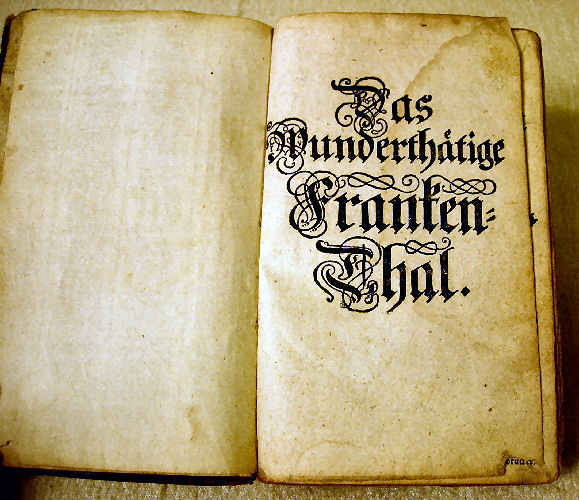 Das
Wunderthätige
Franken-
Thal.